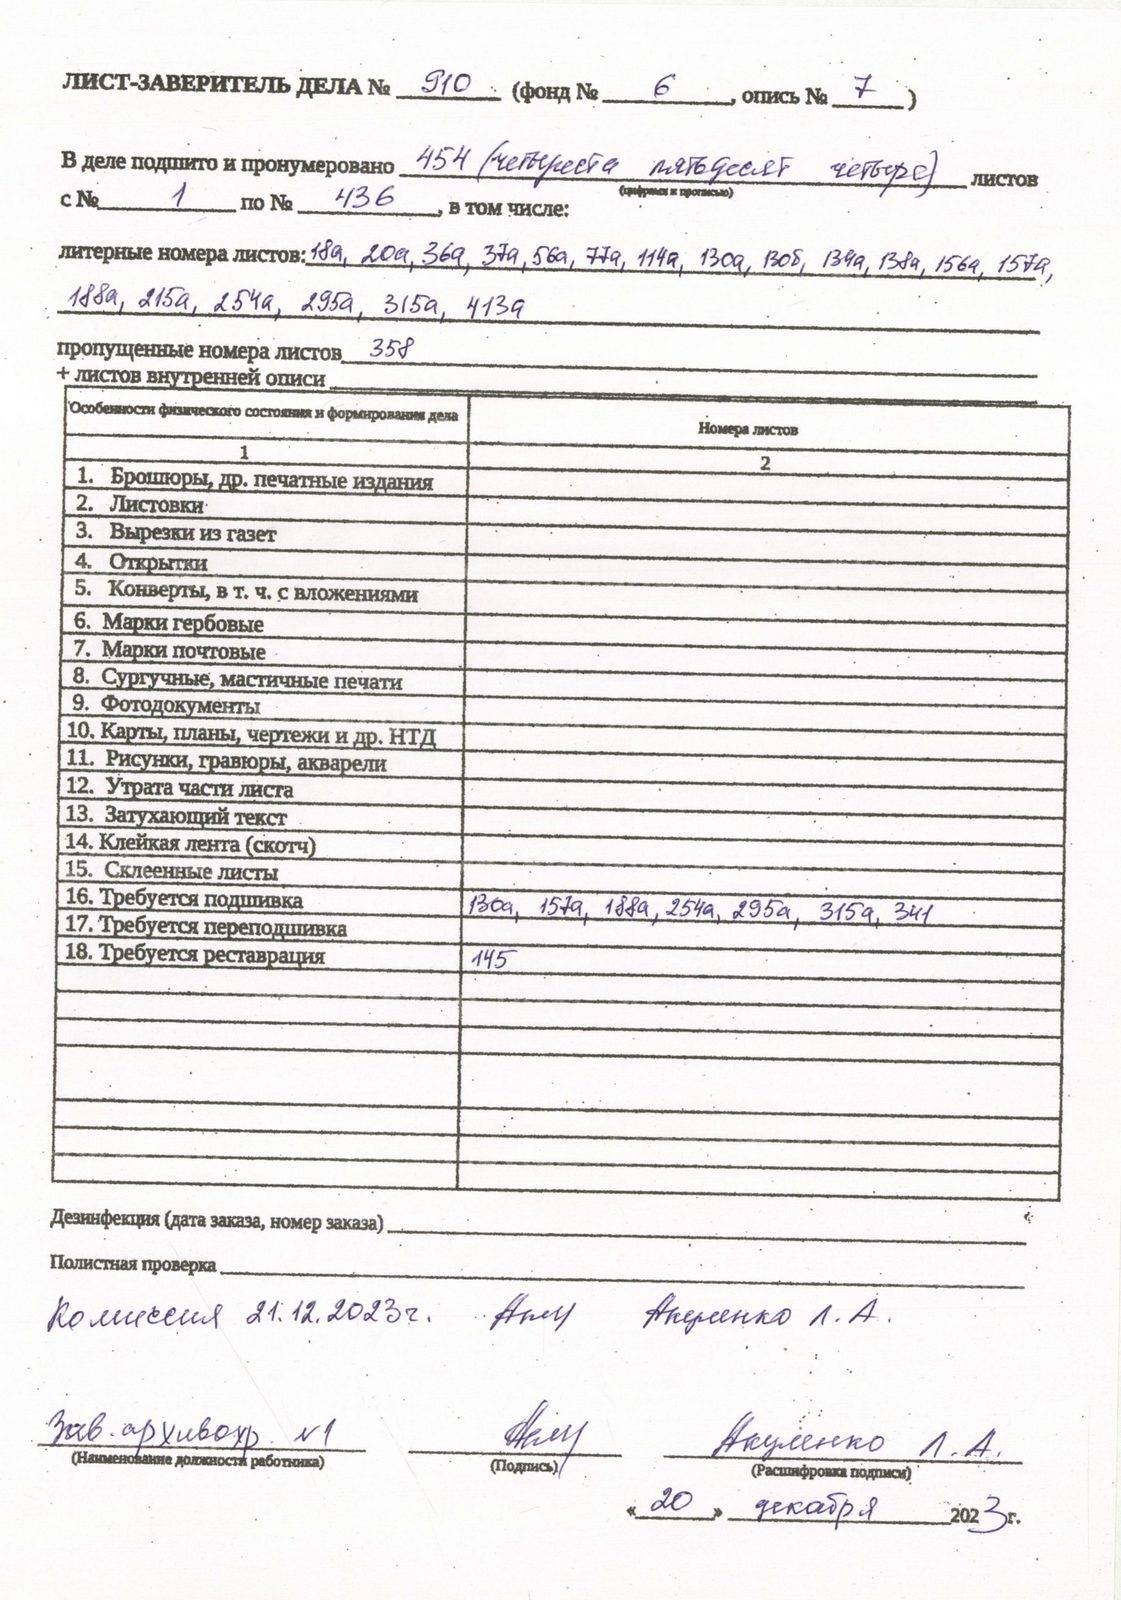 ЛИСТ-ЗАВЕРИТЕЛЬ ДЕЛА № 910 (фонд № 6, опись № 7)
В деле подшито и пронумеровано 454 (четыреста пятьдесят четыре) листов
(цифрами и прописью)
с № 1 по № 436, в том числе:
литерные номера листов: 18а, 20а, 36а, 37а, 56а, 77а, 114а, 130а, 130б, 134а, 138а, 156а, 157а,
188а, 215а, 254а, 295а, 315а, 413а
пропущенные номера листов 358
+ листов внутренней описи
Особенности физического состояния и формирования дела Номера листов
1 2
1. Брошюры, др. печатные издания
2. Листовки
3. Вырезки из газет
4. Открытки
5. Конверты, в т. ч. с вложениями
6. Марки гербовые
7. Марки почтовые
8. Сургучные, мастичные печати
9. Фотодокументы
10. Карты, планы, чертежи и др. НТД
11. Рисунки, гравюры, акварели
12. Утрата части листа
13. Затухающий текст
14. Клейкая лента (скотч)
15. Склеенные листы
16. Требуется подшивка 130а, 157а, 188а, 254а, 295а, 315а, 341
17. Требуется переподшивка
18. Требуется реставрация 145
Дезинфекция (дата заказа, номер заказа)
Полистная проверка
Комиссия 21.12.2023г. Акуленко Л. А.
Зав. архивохр. №1 Акуленко Л. А.
(Наименование должности работника) (Подпись) (Расшифровка подписи)
«20» декабря 2023г.